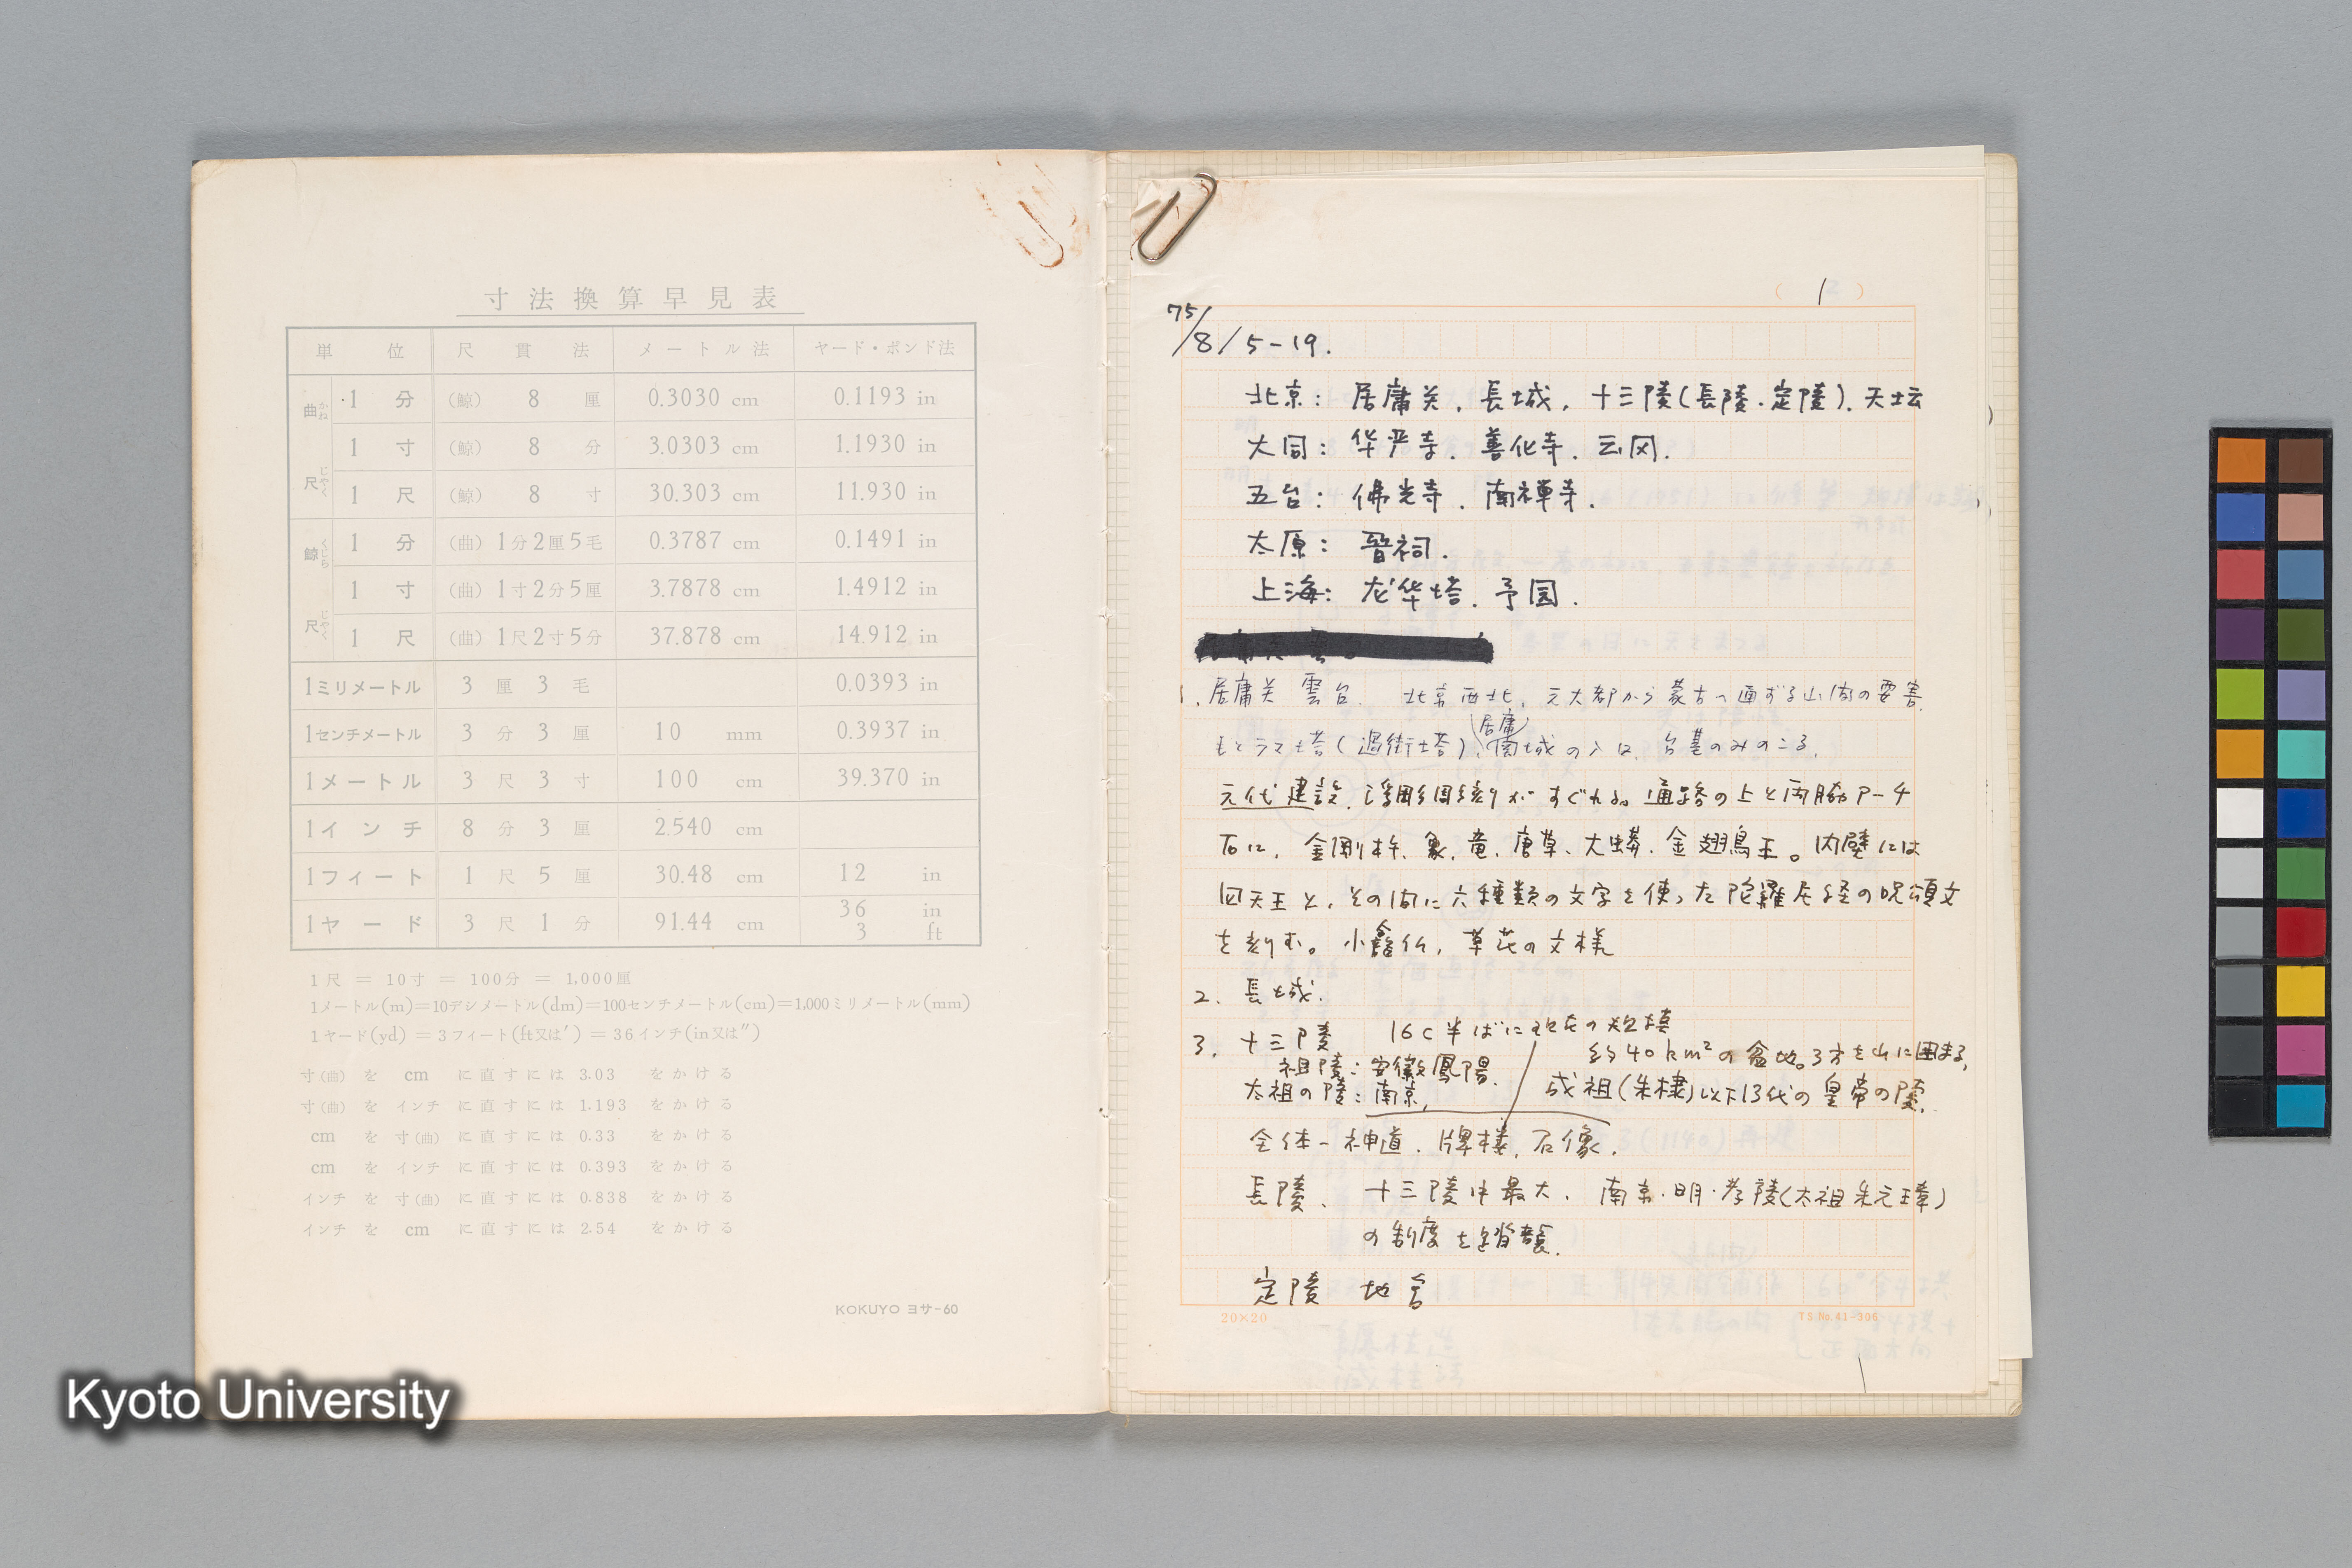 寸法換算早見表
単位 尺貫法 メートル法 ヤード・ポンド法
曲尺 かね じゃく
1分 (鯨) 8厘 0.3030 cm 0.1193 in
1寸 (鯨) 8分 3.0303 cm 1.1930 in
1尺 (鯨) 8寸 30.303 cm 11.930 in
鯨尺 くじら じゃく
1分 (曲) 1分2厘5毛 0.3787 cm 0.1491 in
1寸 (曲) 1寸2分5厘 3.7878 cm 1.4912 in
1尺 (曲) 1尺2寸5分 37.878 cm 14.912 in
1ミリメートル 3厘3毛 0.0393 in
1センチメートル 3分3厘 10 mm 0.3937 in
1メートル 3尺3寸 100 cm 39.370 in
1インチ 8分3厘 2.540 cm
1フィート 1尺5厘 30.48 cm 12 in
1ヤード 3尺1分 91.44 cm 36 in 3 ft
1尺 = 10寸 = 100分 = 1,000厘
1メートル(m)=10デシメートル(dm)=100センチメートル(cm)=1,000ミリメートル(mm)
1ヤード(yd) = 3フィート(ft又は′) = 36インチ(in又は″)
寸(曲) を cm に直すには 3.03 をかける
寸(曲) を インチ に直すには 1.193 をかける
cm を 寸(曲) に直すには 0.33 をかける
cm を インチ に直すには 0.393 をかける
インチ を 寸(曲) に直すには 0.838 をかける
インチ を cm に直すには 2.54 をかける
KOKUYO ヨサ-60
( 1 )
75/8/5-19.
北京: 居庸关. 長城. 十三陵(長陵・定陵). 天坛
大同: 华严寺. 善化寺. 云冈.
五台: 佛光寺. 南禅寺.
太原: 晋祠.
上海: 龙华塔. 予园.
1. 居庸关 雲台. 北京西北, 元大都から蒙古へ通ずる山間の要害.
もとラマ塔(過街塔), 居庸関城の入口, 台基のみのこる.
元代建設. 浮彫彫刻がすぐれる。通路の上と両脇アーチ
石に, 金剛杵、象、竜、唐草、大蟒、金翅鳥王。内壁には
四天王と, その間に六種類の文字を使った陀羅尼経の呪頌文
を刻む。小龕仏, 草花の文様
2. 長城.
3. 十三陵 16C半ばに現在の規模
約40km²の盆地。3方を山に囲まる,
祖陵: 安徽鳳陽.
太祖の陵: 南京, 成祖(朱棣)以下13代の皇帝の陵.
全体一神道. 牌楼, 石像.
長陵、 十三陵中最大. 南京・明・孝陵(太祖朱元璋)
の制度を踏襲.
定陵 地宮
20×20
TS No.41-306
Kyoto University